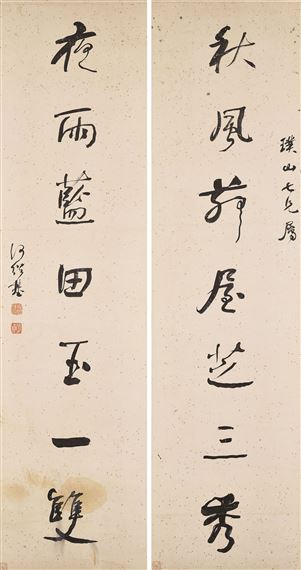 秋風茆屋芝三秀
璞山七兄屬
夜雨藍田玉一雙
何紹基